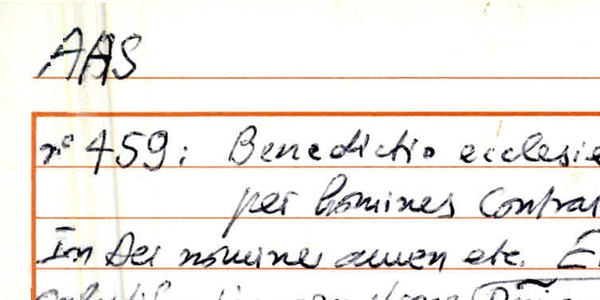 AAS
nº 459: Benedictio ecclesie
per homines Contra
In Dei nomine amen etc. E